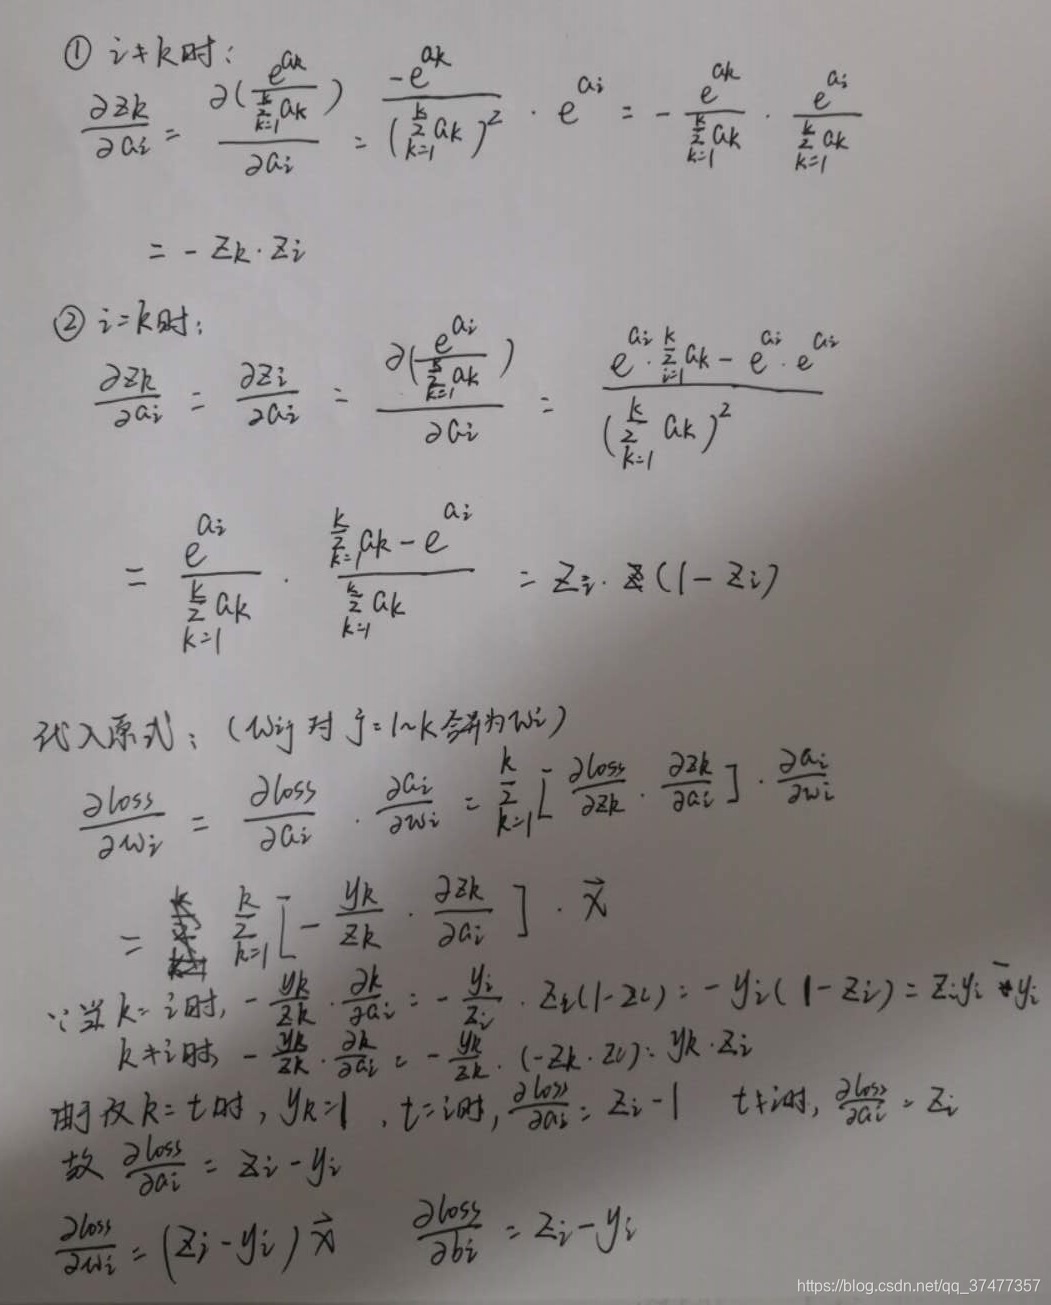 ① i≠k时:
∂zk/∂ai = ∂(e^ak / Σ_{k=1}^{k} ak)/∂ai = -e^ak/(Σ_{k=1}^{k} ak)^2 · e^ai = - e^ak/Σ_{k=1}^{k} ak · e^ai/Σ_{k=1}^{k} ak
= - zk · zi
② i=k时:
∂zk/∂ai = ∂zi/∂ai = ∂(e^ai / Σ_{k=1}^{k} ak)/∂ai = (e^ai · Σ_{i=1}^{k} ak - e^ai · e^ai)/(Σ_{k=1}^{k} ak)^2
= e^ai/Σ_{k=1}^{k} ak · (Σ_{k=1}^{k} ak - e^ai)/Σ_{k=1}^{k} ak = zi · (1 - zi)
代入原式: (wij 对 j=1~k 合并为wi)
∂loss/∂wi = ∂loss/∂ai · ∂ai/∂wi = Σ_{k=1}^{k} [∂loss/∂zk · ∂zk/∂ai] · ∂ai/∂wi
= Σ_{k=1}^{k} [- yk/zk · ∂zk/∂ai] · x⃗
∵当 k=i时, - yk/zk · ∂k/∂ai = - yi/zi · zi(1-zi) = -yi(1-zi) = ziyi - yi
k≠i时, - yk/zk · ∂k/∂ai = - yk/zk · (-zk · zi) = yk · zi
由于仅k=t时, yk=1, t=i时, ∂loss/∂ai = zi-1 t≠i时, ∂loss/∂ai = zi
故 ∂loss/∂ai = zi - yi
∂loss/∂wi = (zi - yi) x⃗ ∂loss/∂bi = zi - yi
https://blog.csdn.net/qq_37477357